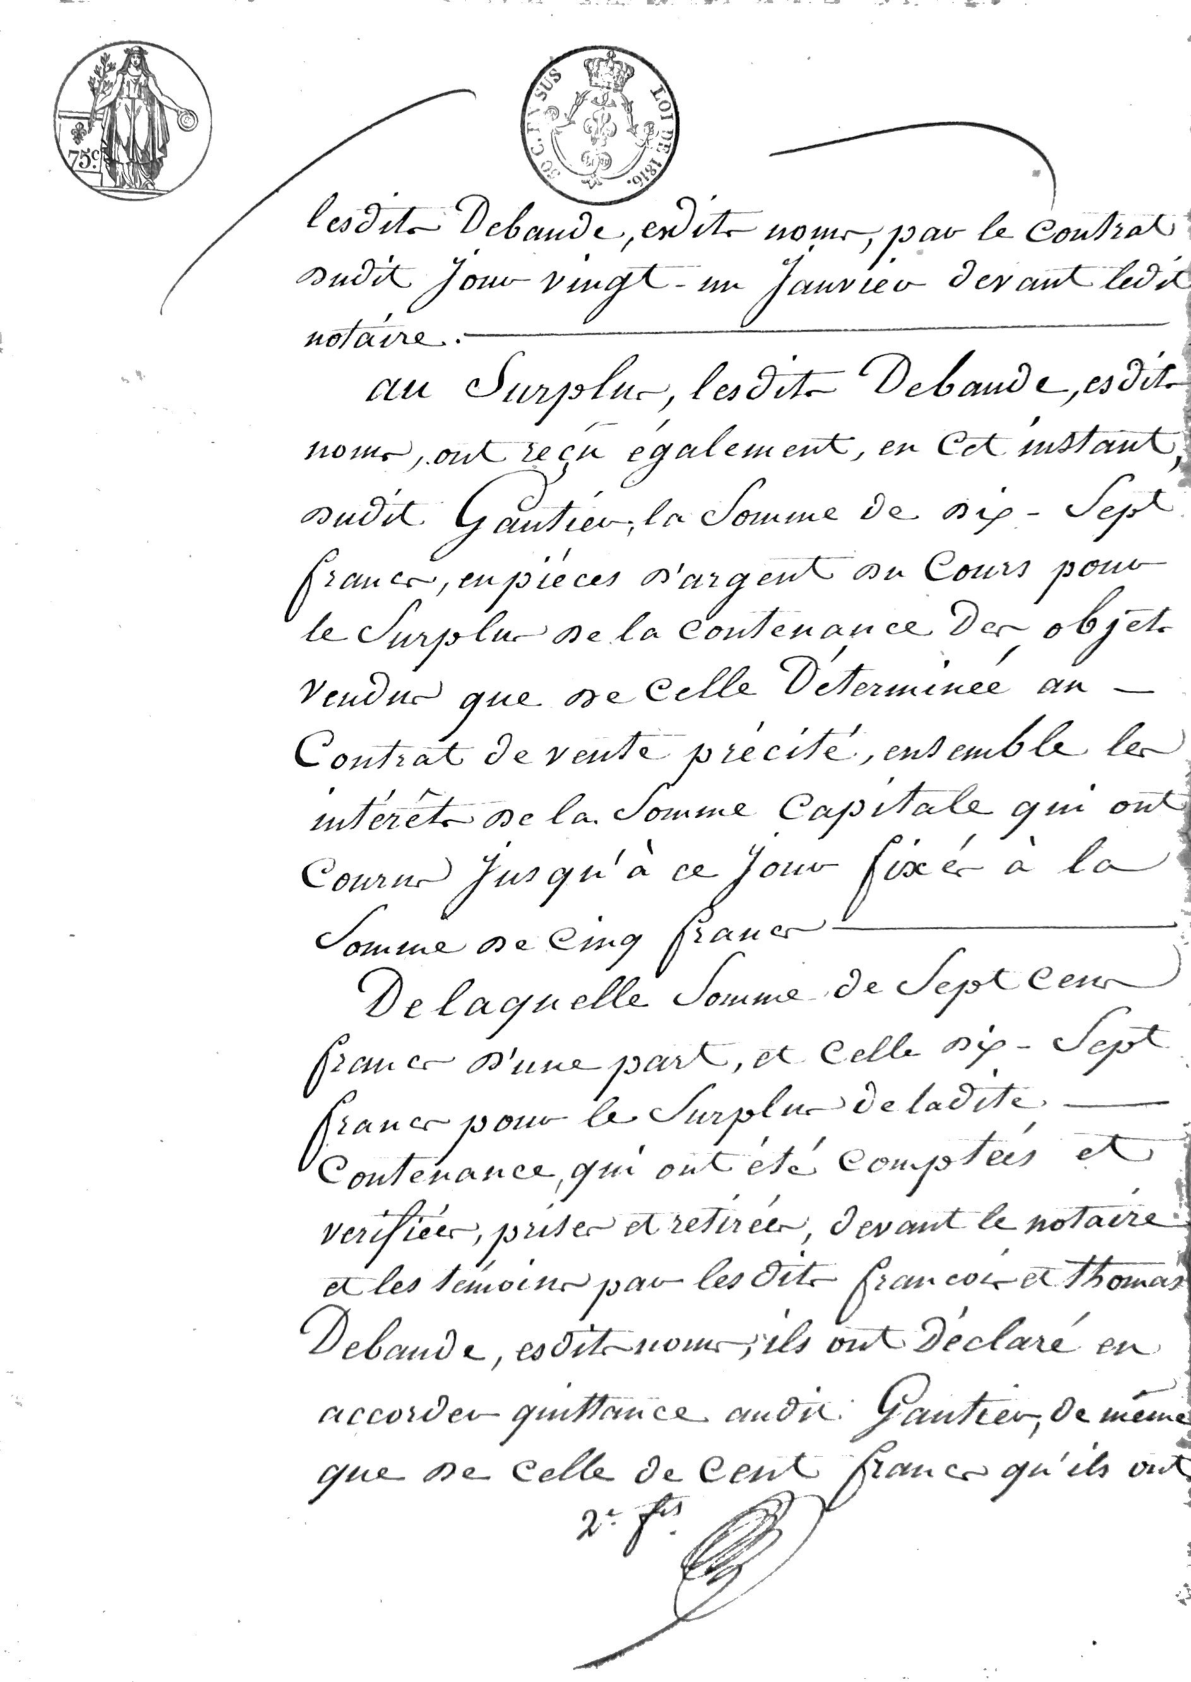 75c.
50 C. EN SUS LOI DE 1816.
lesdits Debaude, esdits noms, par le Contrat
dudit jour vingt-un janvier devant ledit
notáire.
au Surplus, lesdits Debaude, esdits
noms, ont reçu également, en Cet instant,
dudit Gautiér, la Somme de dix-Sept
francs, en piéces d'argent du Cours pour
le Surplus de la Contenance Des objets
Vendus que de Celle Déterminée au
Contrat de vente précité, ensemble les
intérêts de la Somme Capitale qui ont
Courus jusqu'à ce jour fixés à la
Somme de Cinq francs
De laquelle Somme de Sept Cens
francs d'une part, et Celle dix-Sept
francs pour le Surplus de ladite
Contenance, qui ont été Comptées et
verifiées, prises et retirées, devant le notaire
et les témoins par lesdits françois et thomas
Debaude, esdits noms, ils ont Déclaré en
accorder quittance audit Gautier, de même
que de Celle de Cent francs qu'ils ont
2e. fls.